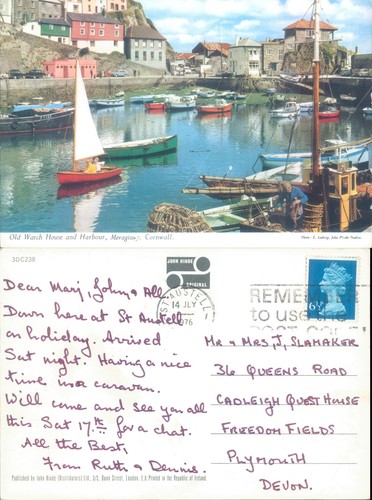 Old Watch House and Harbour, Mevagissey, Cornwall.
Photo: E. Ludwig, John Hinde Studios.
3DC238
JOHN HINDE
ORIGINAL
ST AUSTELL
14 JLY
1976
REMEMBER
to use the
POST CODE
6½P
Dear Marj, John, & All
Down here at St Austell
on holiday. Arrived
Sat night. Having a nice
time in a caravan.
Will come and see you all
this Sat 17th for a chat.
All the Best,
From Ruth & Dennis.
MR & MRS, J, SLAMAKER
36 QUEENS ROAD
CADLEIGH GUEST HOUSE
FREEDOM FIELDS
PLYMOUTH
DEVON.
Published by John Hinde (Distributors) Ltd., 3/5, Dunn Street, London, E.8 Printed in the Republic of Ireland.